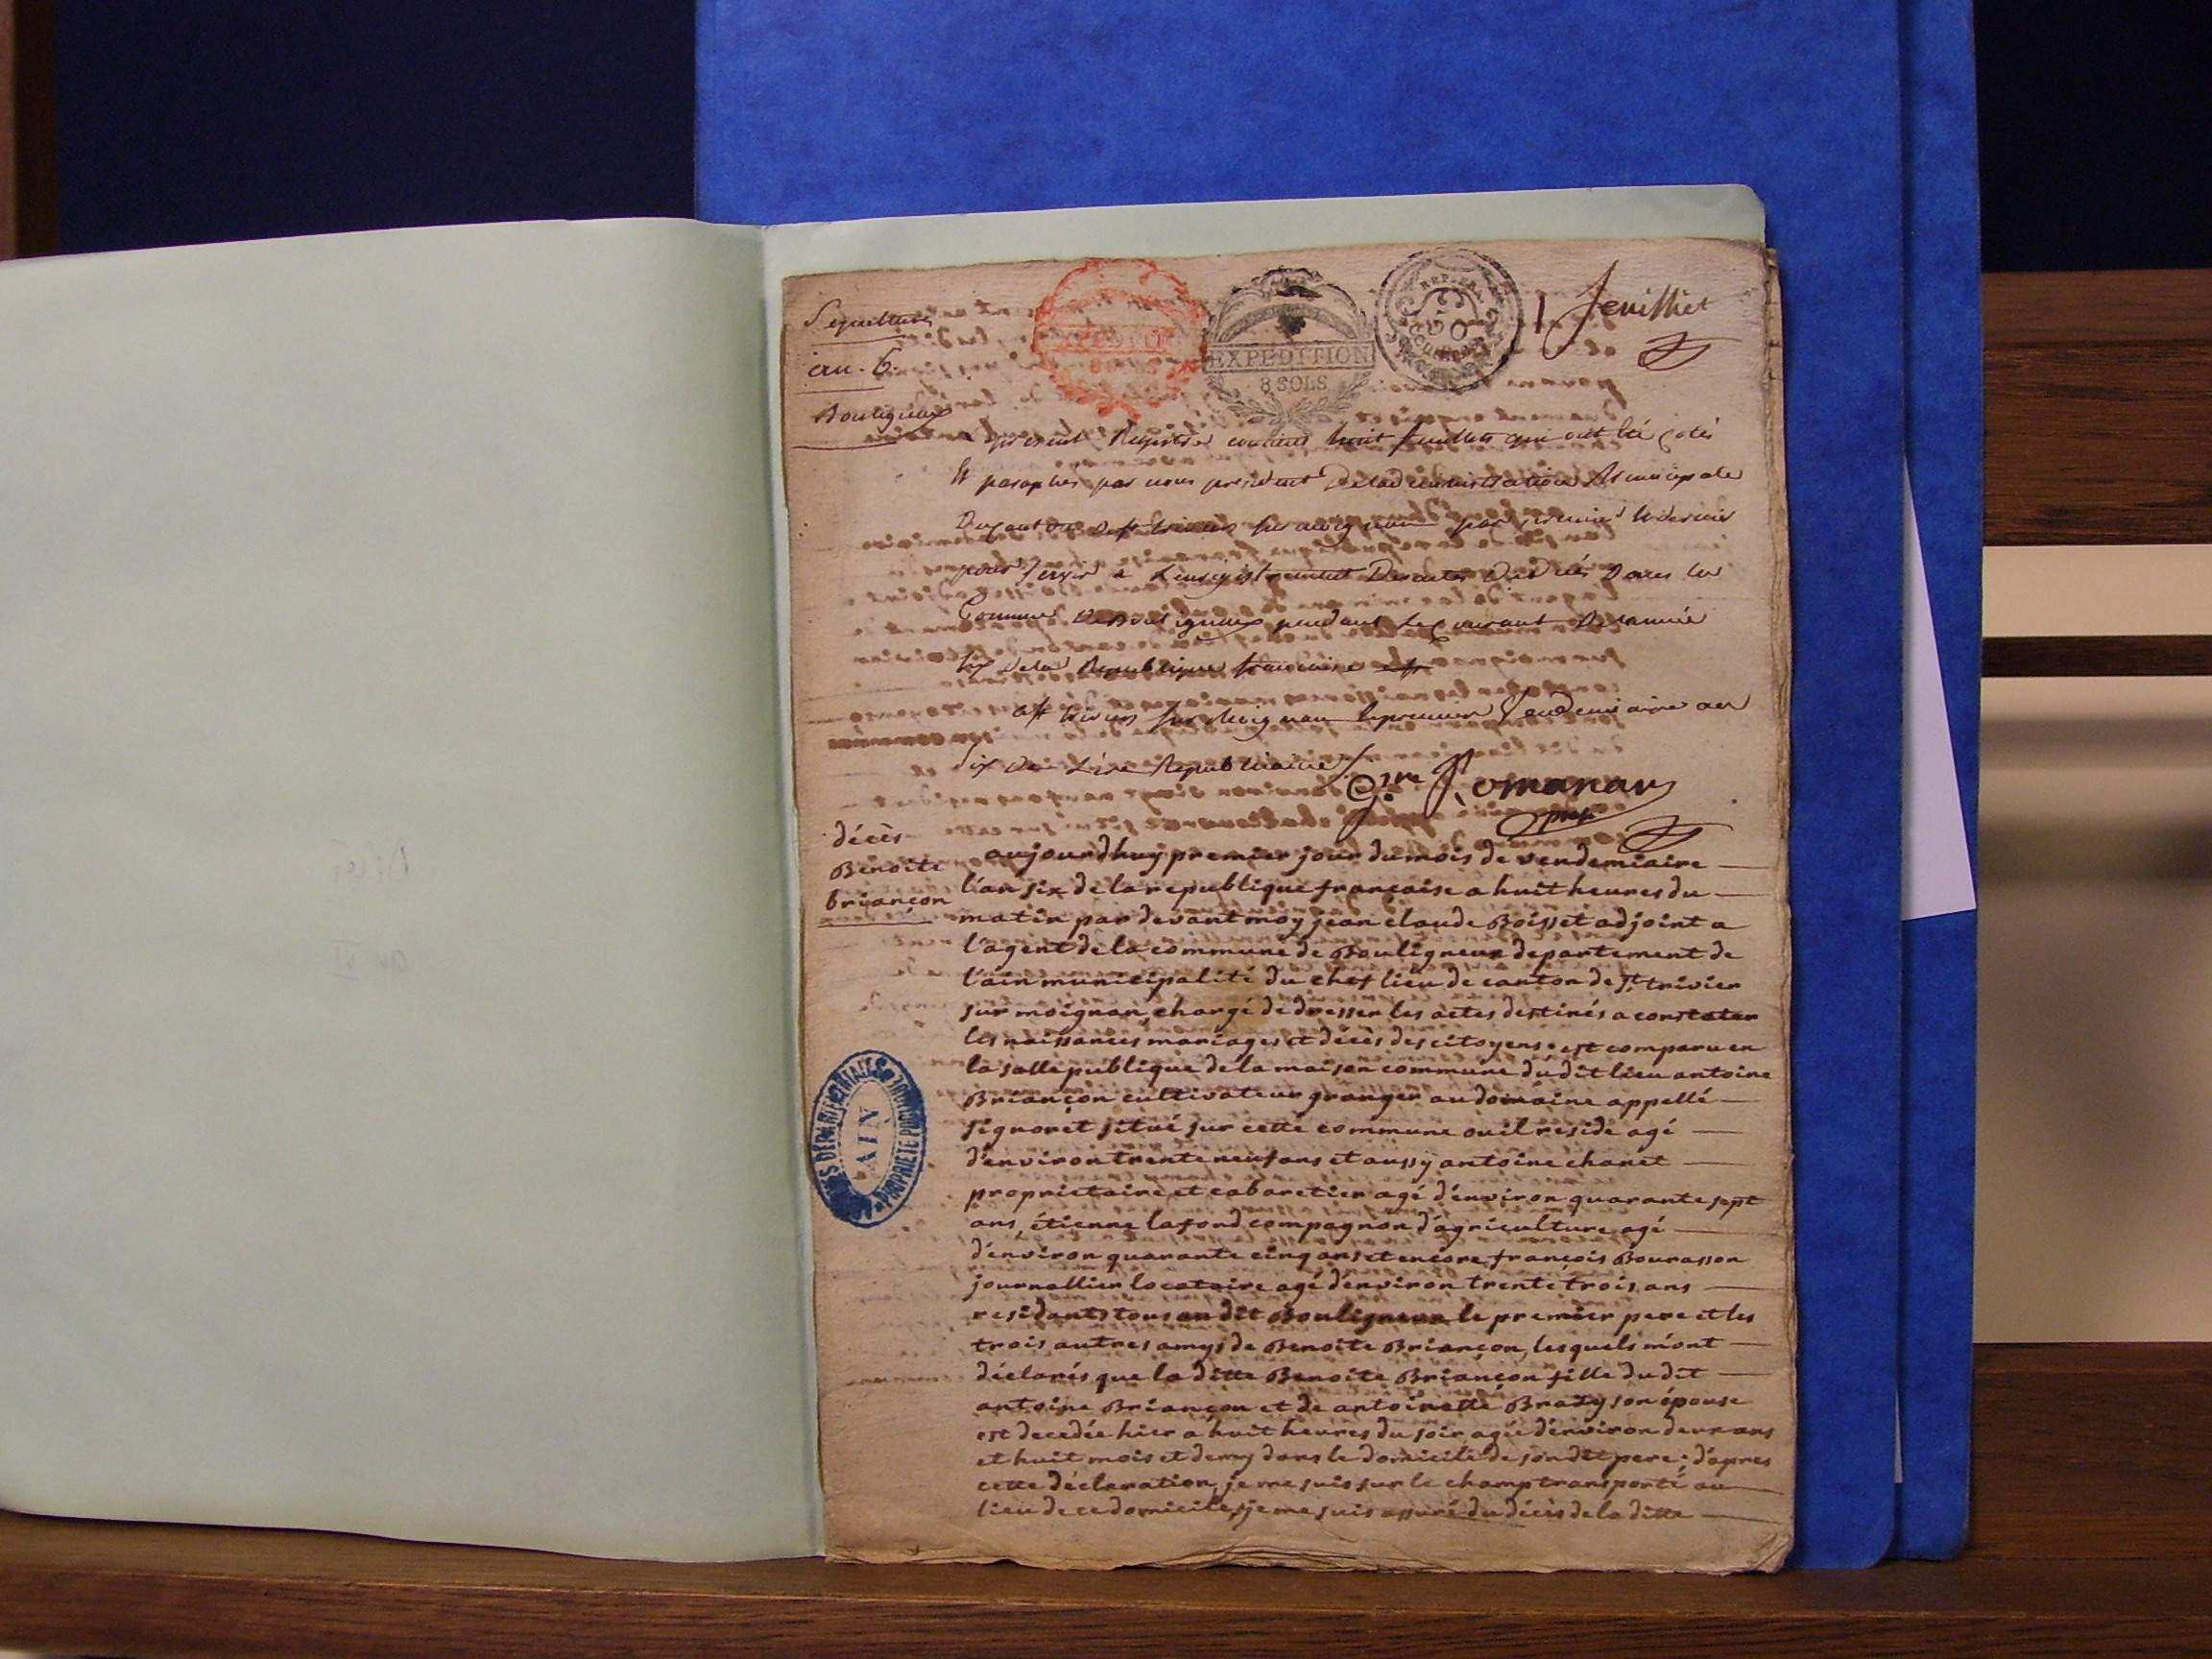 Sepulture
an. 6.
Bouligneux
EXPEDITION
8 SOLS
1 feuillet
present Registre contient huit feuillets qui ont été cotés
Et paraphés par nous president De Ladministration Municipale
Du canton De St trivier sur moignan par premier & dernier
pour servir a Lenregistrement Des actes De décès Dans la
Commune De Bouligneux pendant Le courant De l'année
six De la Republique francaise
a St trivier sur Moignan le premier Vendemiaire an
six De L'ere Republicaine
Romanans
décès
Benoite
briançon
aujourdhuy premier jour du mois de vendemiaire
l'an six de la republique française a huit heures du
matin par devant moy jean claude Boisset adjoint a
l'agent de la commune de Bouligneux departement de
l'ain municipalité du chef lieu de canton de St trivier
sur moignan, chargé de dresser les actes destinés a constater
les naissances mariages et décès des citoyens. est comparu en
la salle publique de la maison commune du dit lieu antoine
Briançon cultivateur granger au domaine appellé
signoret situé sur cette commune ou il reside agé
d'environ trente neuf ans et aussy antoine chanet
proprietaire et cabaretier agé d'environ quarante sept
ans, étienne lafond compagnon d'agriculture agé
d'environ quarante cinq ans et encore françois Bourasson
journallier locataire agé d'environ trente trois ans
residants tous au dit Bouligneux le premier pere et les
trois autres amys de Benoite Briançon, lesquels m'ont
déclarés que la ditte Benoite Briançon fille du dit
antoine Briançon et de antoinette Brazy son épouse
est decedée hier a huit heures du soir agée d'environ deux ans
et huit mois et demy dans le domicile de son dit pere; d'apres
cette déclaration, je me suis sur le champ transporté au
lieu de ce domicile, je me suis assuré du décès de la ditte
ARCHIVES DEPARTEMENTALES
AIN
PROPRIETE PUBLIQUE